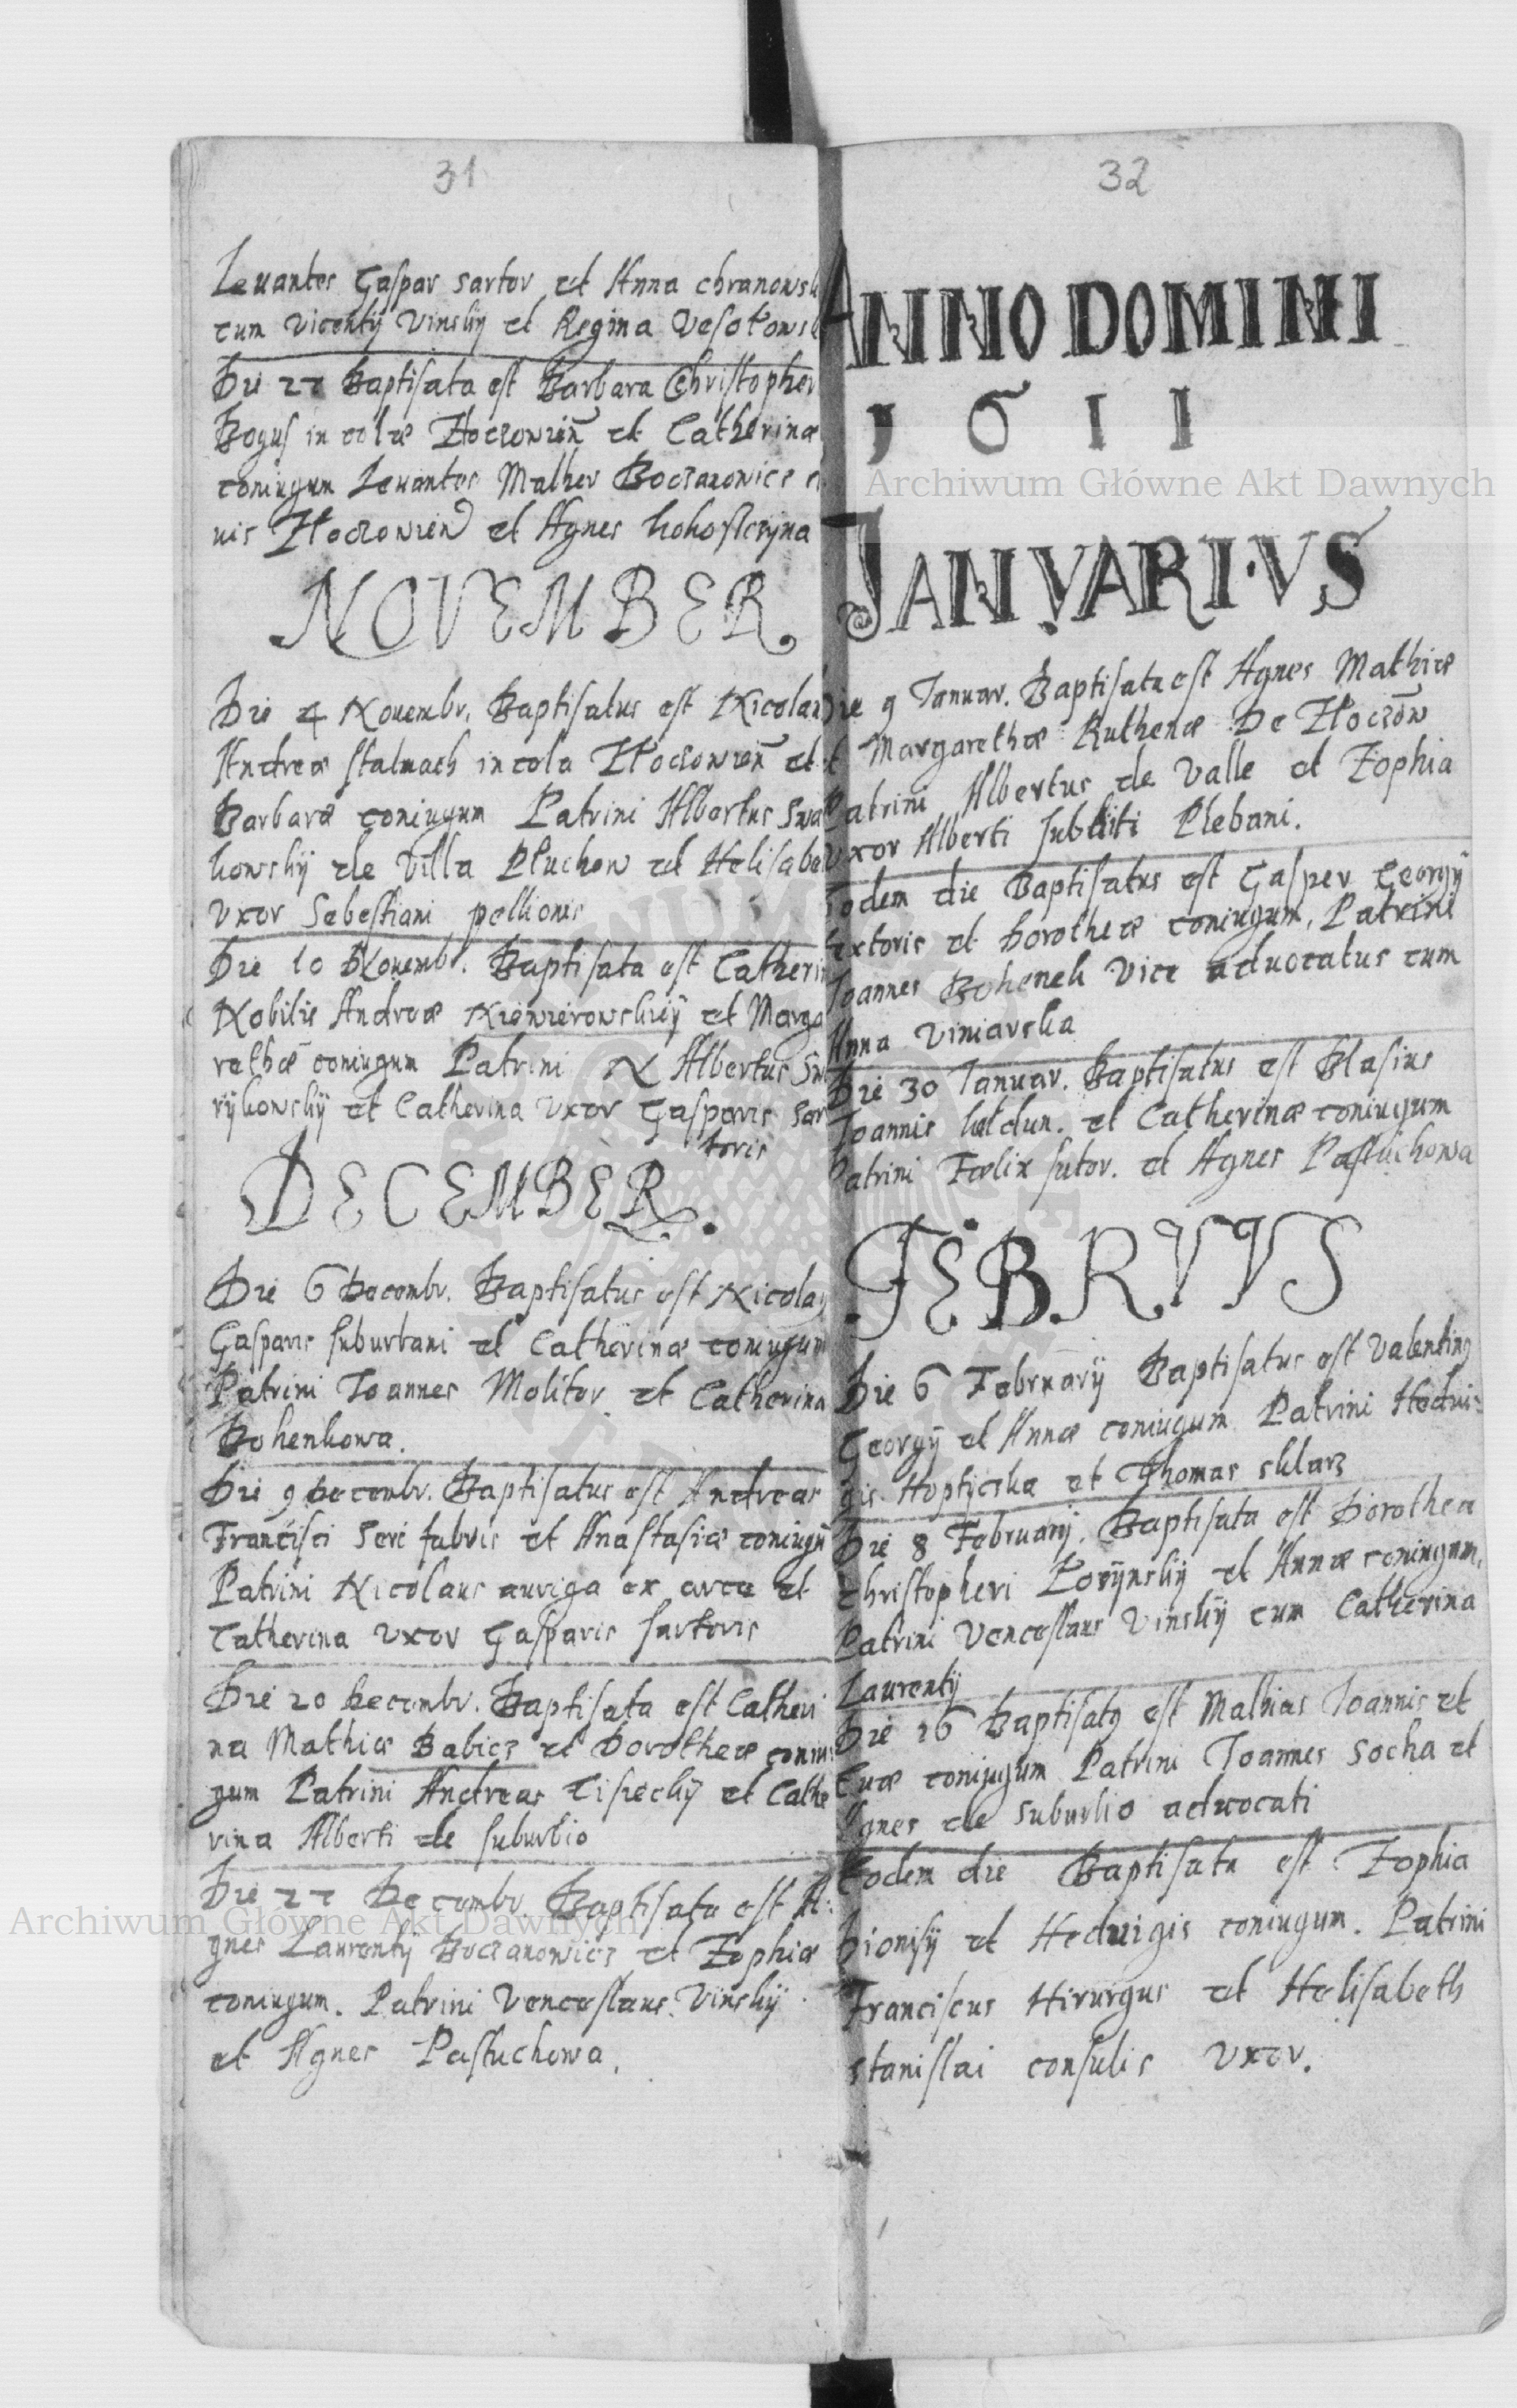 31
Leuantes Gaspar sartor et Anna chranowsk
cum Vicentÿ Vinskÿ et Regina Vesołows
Die 22 Baptisata est Barbara Christopher
Bogus in colæ Złoczowień et Catherinæ
coniugum Leuantes Mather Boczarowicz c
uis Złoczowień et Agnes
NOVEMBER
Die 4 Nouembr. Baptisatus est Nicolau
Andreæ stalmach incola Złoczowień et
Barbaræ coniugum Patrini Albertus Swa
kowskÿ de Villa Płuchow et Helisabe
Vxor Sebestiani pellionis
Die 10 Nouemb. Baptisata est Catheri
Nobilis Andreæ et Marga
rethæ coniugum Patrini N Albertus Sw
rÿkowskÿ et Catherina Vxor Gasparis Sar
toris
DECEMBER.
Die 6 Decembr. Baptisatus est Nicolaꝰ
Gasparis suburbani et Catherinæ coniugum
Patrini Ioannes Molitor et Catherina
Bohenkowa.
Die 9 Decembr. Baptisatus est Andreas
Francisci Seri fabris et Anastasiæ coniugū
Patrini Nicolaus auriga ex arce et
Catherina Vxor Gasparis sartoris
Die 20 Decembr. Baptisata est Catheri
na Mathiæ Babicz et Dorotheæ coniu
gum Patrini Andreas Cisieckÿ et Cathe
rina Alberti de suburbio
Die 27 Decembr. Baptisata est A:
gnes Laurentÿ Boczarowicz et Zophiæ
coniugum. Patrini Venceslaus Vinskÿ
et Agnes Pastuchowa.
32
ANNO DOMINI
1611
IANVARIVS
Die 9 Ianuar. Baptisata est Agnes Mathiæ
et Margarethæ Ruthenæ De Złoczōw
Patrini Albertus de Valle et Zophia
Vxor Alberti subditi Plebani.
Eodem die Baptisatus est Gasper Georgÿ
textoris et Dorotheæ coniugum, Patrini
Ioannes Bohenek Vice aduocatus cum
Anna Viniarska
Die 30 Ianuar. Baptisatus est Blasius
Ioannis et Catherinæ coniugum
Patrini Fælix sutor. et Agnes Pastuchowa
FEBRVVS
Die 6 Februarÿ Baptisatus est Valentinꝰ
Georgÿ et Annæ coniugum Patrini Hedui:
gis Hoptÿcska et Thomas sklarz
Die 8 Februarÿ. Baptisata est Dorothea
Christopheri Zorÿnskÿ et Annæ coniugum,
Patrini Venceslaus Vinskÿ cum Catherina
Laurentÿ
Die 16 Baptisatꝰ est Mathias Ioannis et
Euæ coniugum Patrini Ioannes Socha et
Agnes de suburbio aduocati
Eodem die Baptisata est Zophia
Dionisÿ et Heduigis coniugum. Patrini
Franciscus Hirurgus et Helisabeth
stanislai consulis Vxor.
Archiwum Główne Akt Dawnych
Archiwum Główne Akt Dawnych